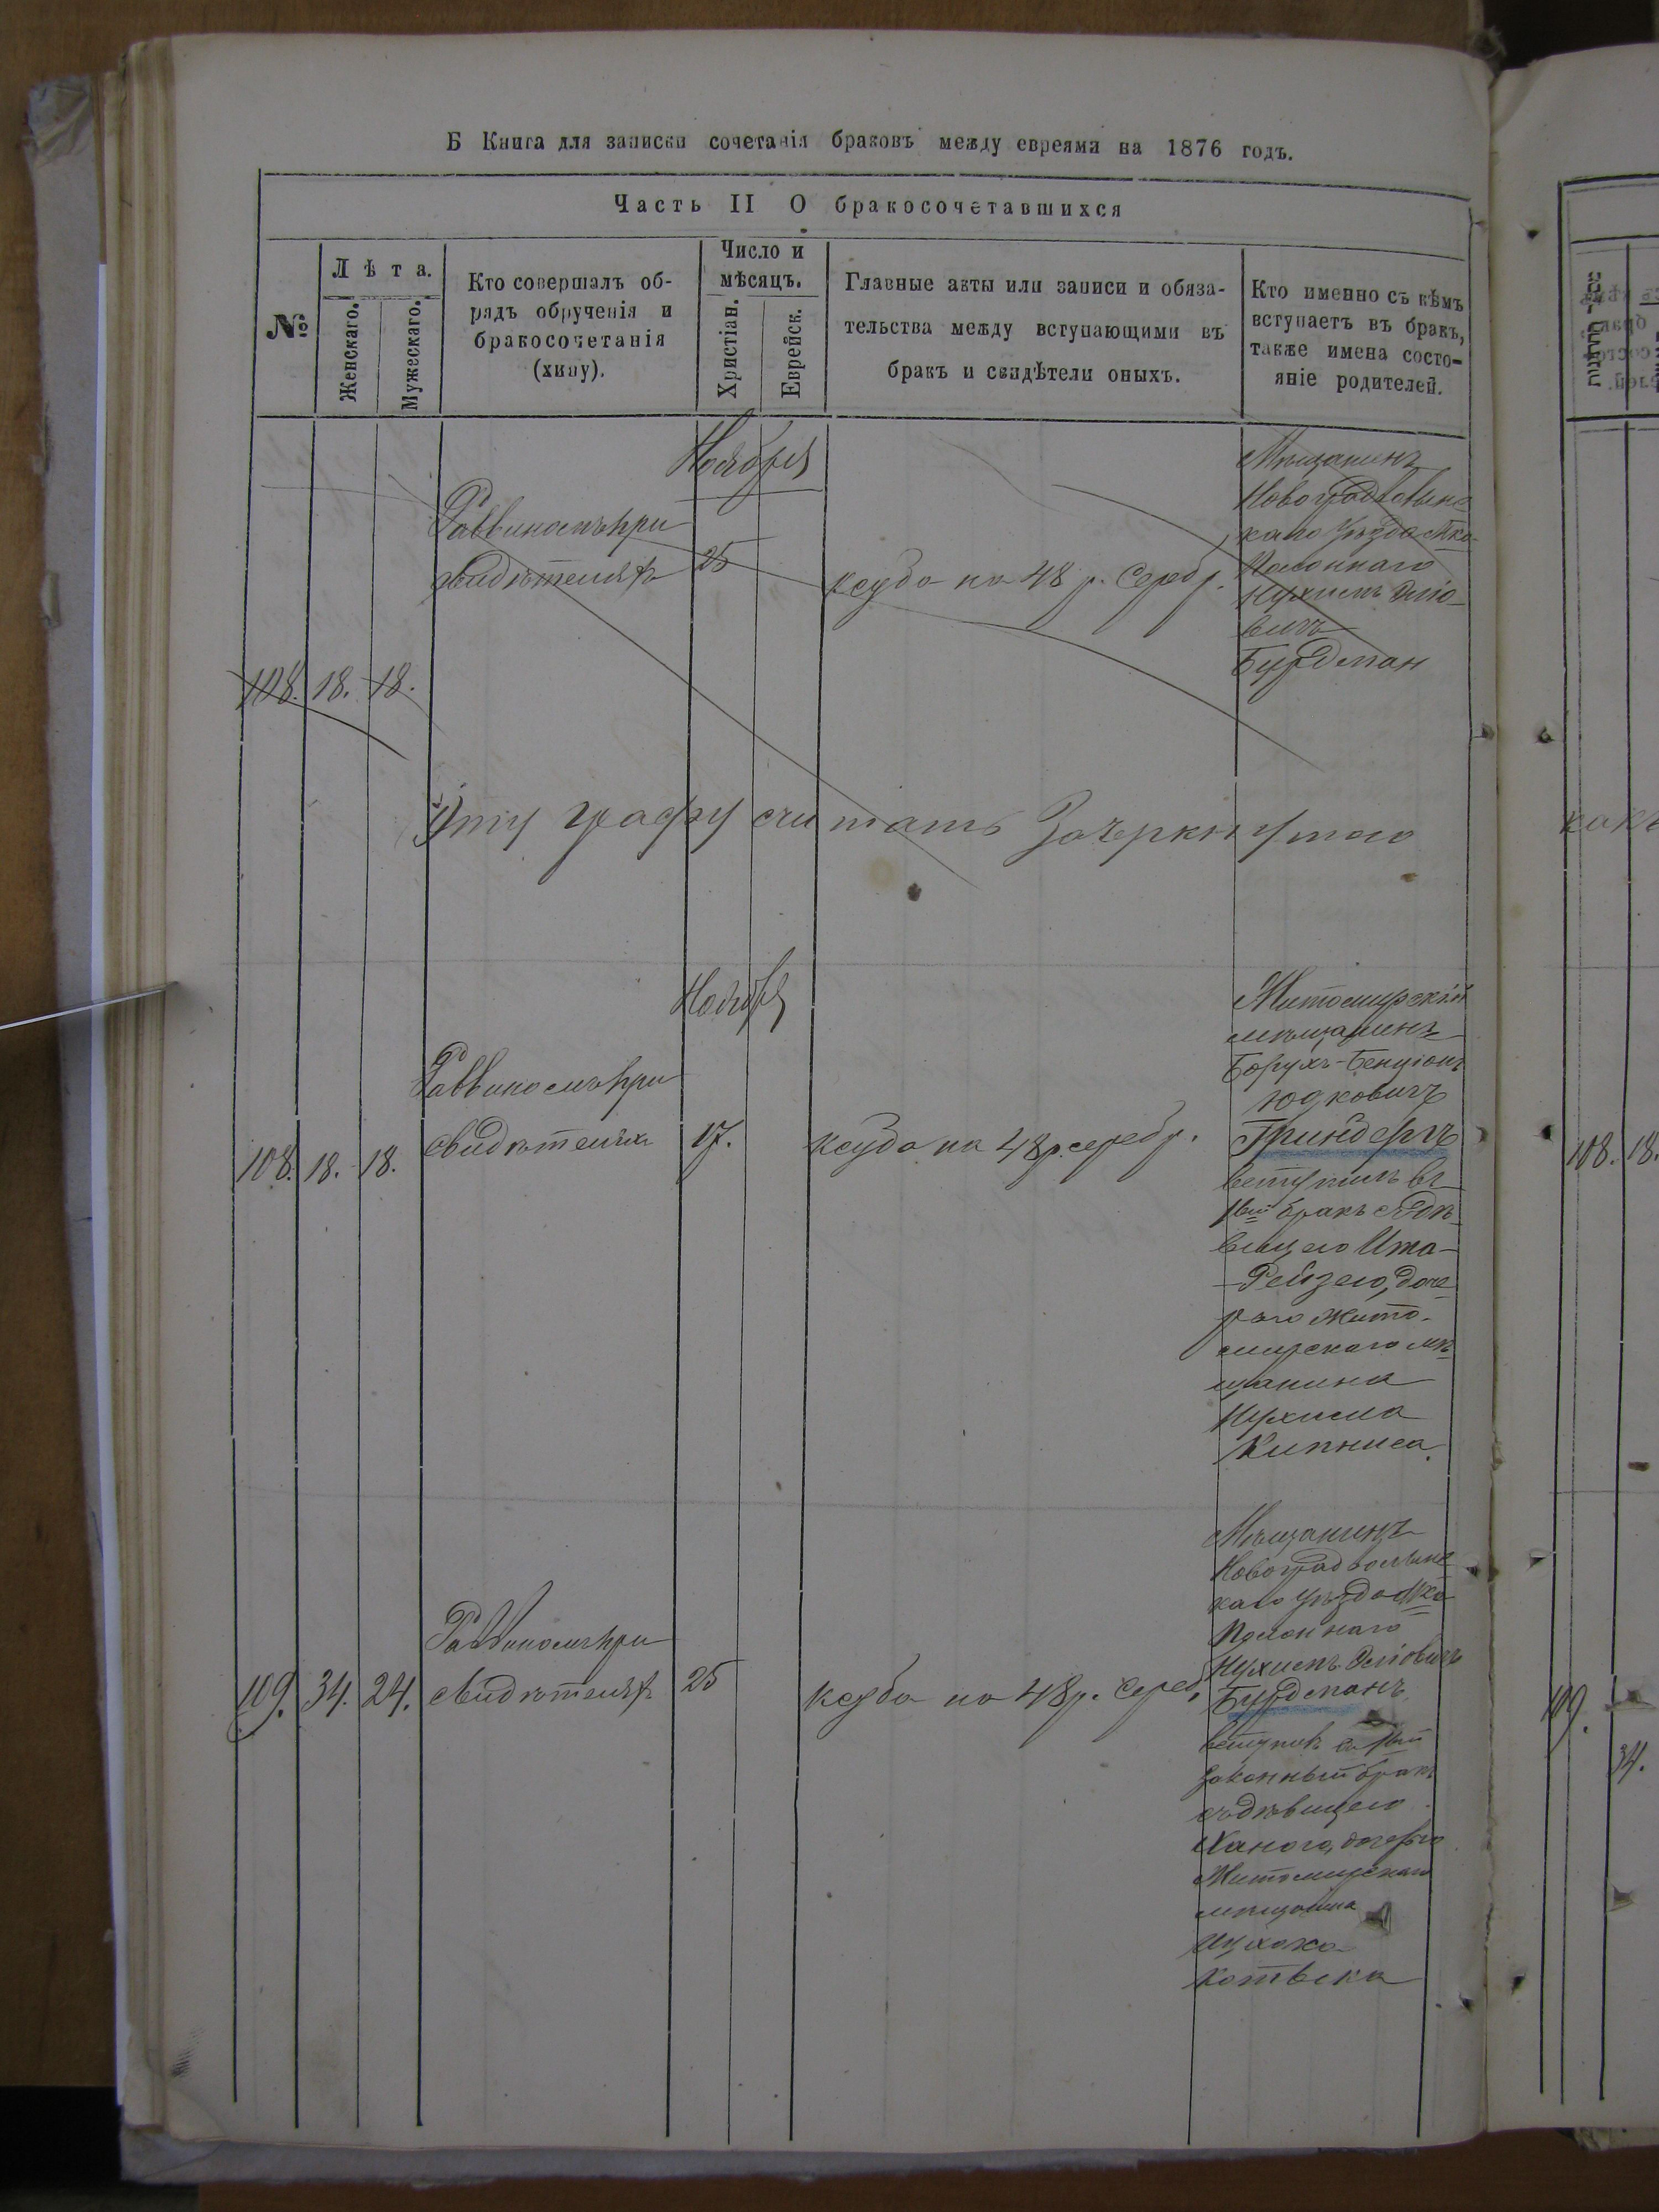 Б Книга для записки сочетанія браковъ между евреями на 1876 годъ.
Часть II О бракосочетавшихся
№
Лѣта.
Женскаго.
Мужескаго.
Кто совершалъ об-
рядъ обрученія и
бракосочетанія
(хипу).
Число и
мѣсяцъ.
Христіан.
Еврейск.
Главные акты или записи и обяза-
тельства между вступающими въ
бракъ и свидѣтели оныхъ.
Кто именно съ кѣмъ
вступаетъ въ бракъ,
также имена состо-
яніе родителей.
108. 18. 18.
Раввиномъ при
свидѣтеляхъ
Ноября
25
ксубо на 48 р. серебр.
Мѣщанинъ
Новоградволынс
каго уѣзда Мка
Полоннаго
Нухимъ
вичъ
Бурдман
Эту графу считать Зачеркнутою
108. 18. 18.
Раввиномъ при
свидѣтеляхъ
Ноября
17.
ксубо на 48 р серебр.
Житомирскій
мѣщанинъ
Борухъ-Бенціонъ
Юдковичъ
Гринберъ
вступилъ въ
1вый бракъ с дѣ-
вицею Ита-
-Рейзею, доче
рью Жито-
мирскаго мѣ
щанина
Нухима
Кипниса.
109. 34. 24.
Раввиномъ при
свидѣтеляхъ
25
ксубо на 48 р. серебр
Мѣщанинъ
Новоградволынс
каго уѣзда Мка
Полоннаго
Нухимъ
Бурдманъ
вступилъ въ 1вый
законный бракъ
съ дѣвицею
Ханою, дочерью
Житомирскаго
мѣщанина
Ицхока
какъ
108. 18.
109.
34.